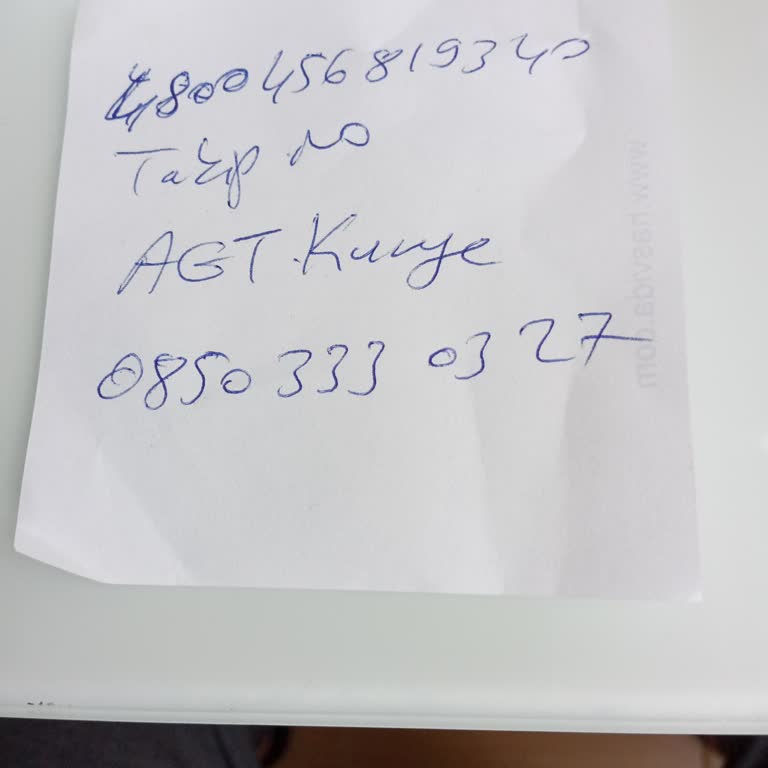 4800456819340
Takip no
AGT Kurye
0850 333 03 27
www.hasvida.com